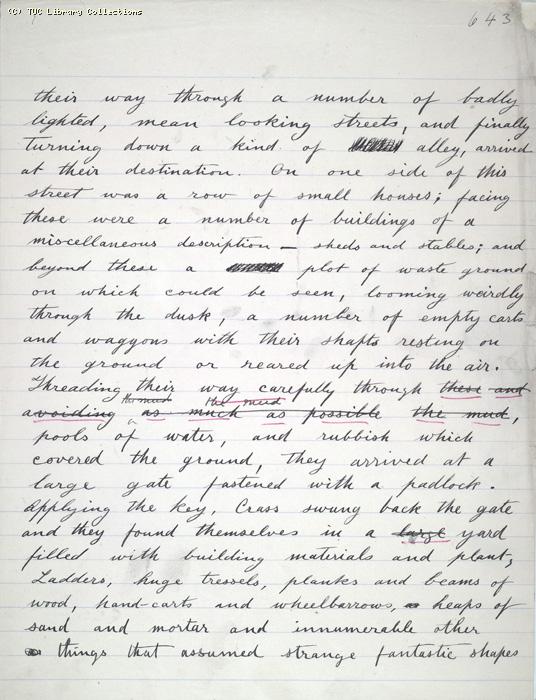 (C) TUC Library Collections
643
their way through a number of badly
lighted, mean looking streets, and finally
turning down a kind of alley, arrived
at their destination. On one side of this
street was a row of small houses; facing
these were a number of buildings of a
miscellaneous description — sheds and stables; and
beyond these a plot of waste ground
on which could be seen, looming weirdly
through the dusk, a number of empty carts
and waggons with their shafts resting on
the ground or reared up into the air.
Threading their way carefully through these and
the mud the mud
avoiding as much as possible the mud,
pools of water, and rubbish which
covered the ground, they arrived at a
large gate fastened with a padlock.
Applying the key, Crass swung back the gate
and they found themselves in a large yard
filled with building materials and plant,
Ladders, huge tressels, planks and beams of
wood, hand-carts and wheelbarrows, heaps of
sand and mortar and innumerable other
things that assumed strange fantastic shapes